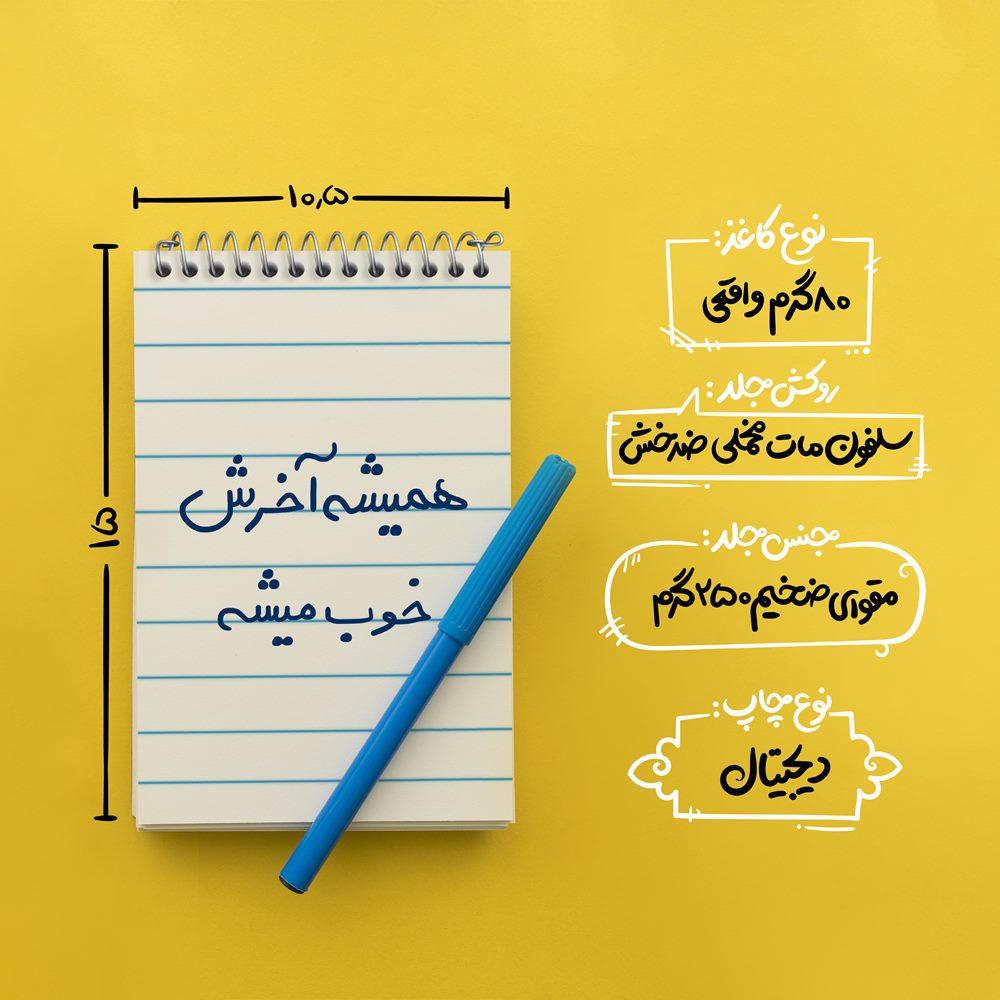 ۱۰,۵
۱۵
همیشه آخرش
خوب میشه
نوع کاغذ:
۸۰گرم واقعی
روکش جلد:
سلفون مات مخملی ضدخش
جنس جلد:
مقوای ضخیم ۲۵۰گرم
نوع چاپ:
دیجیتال